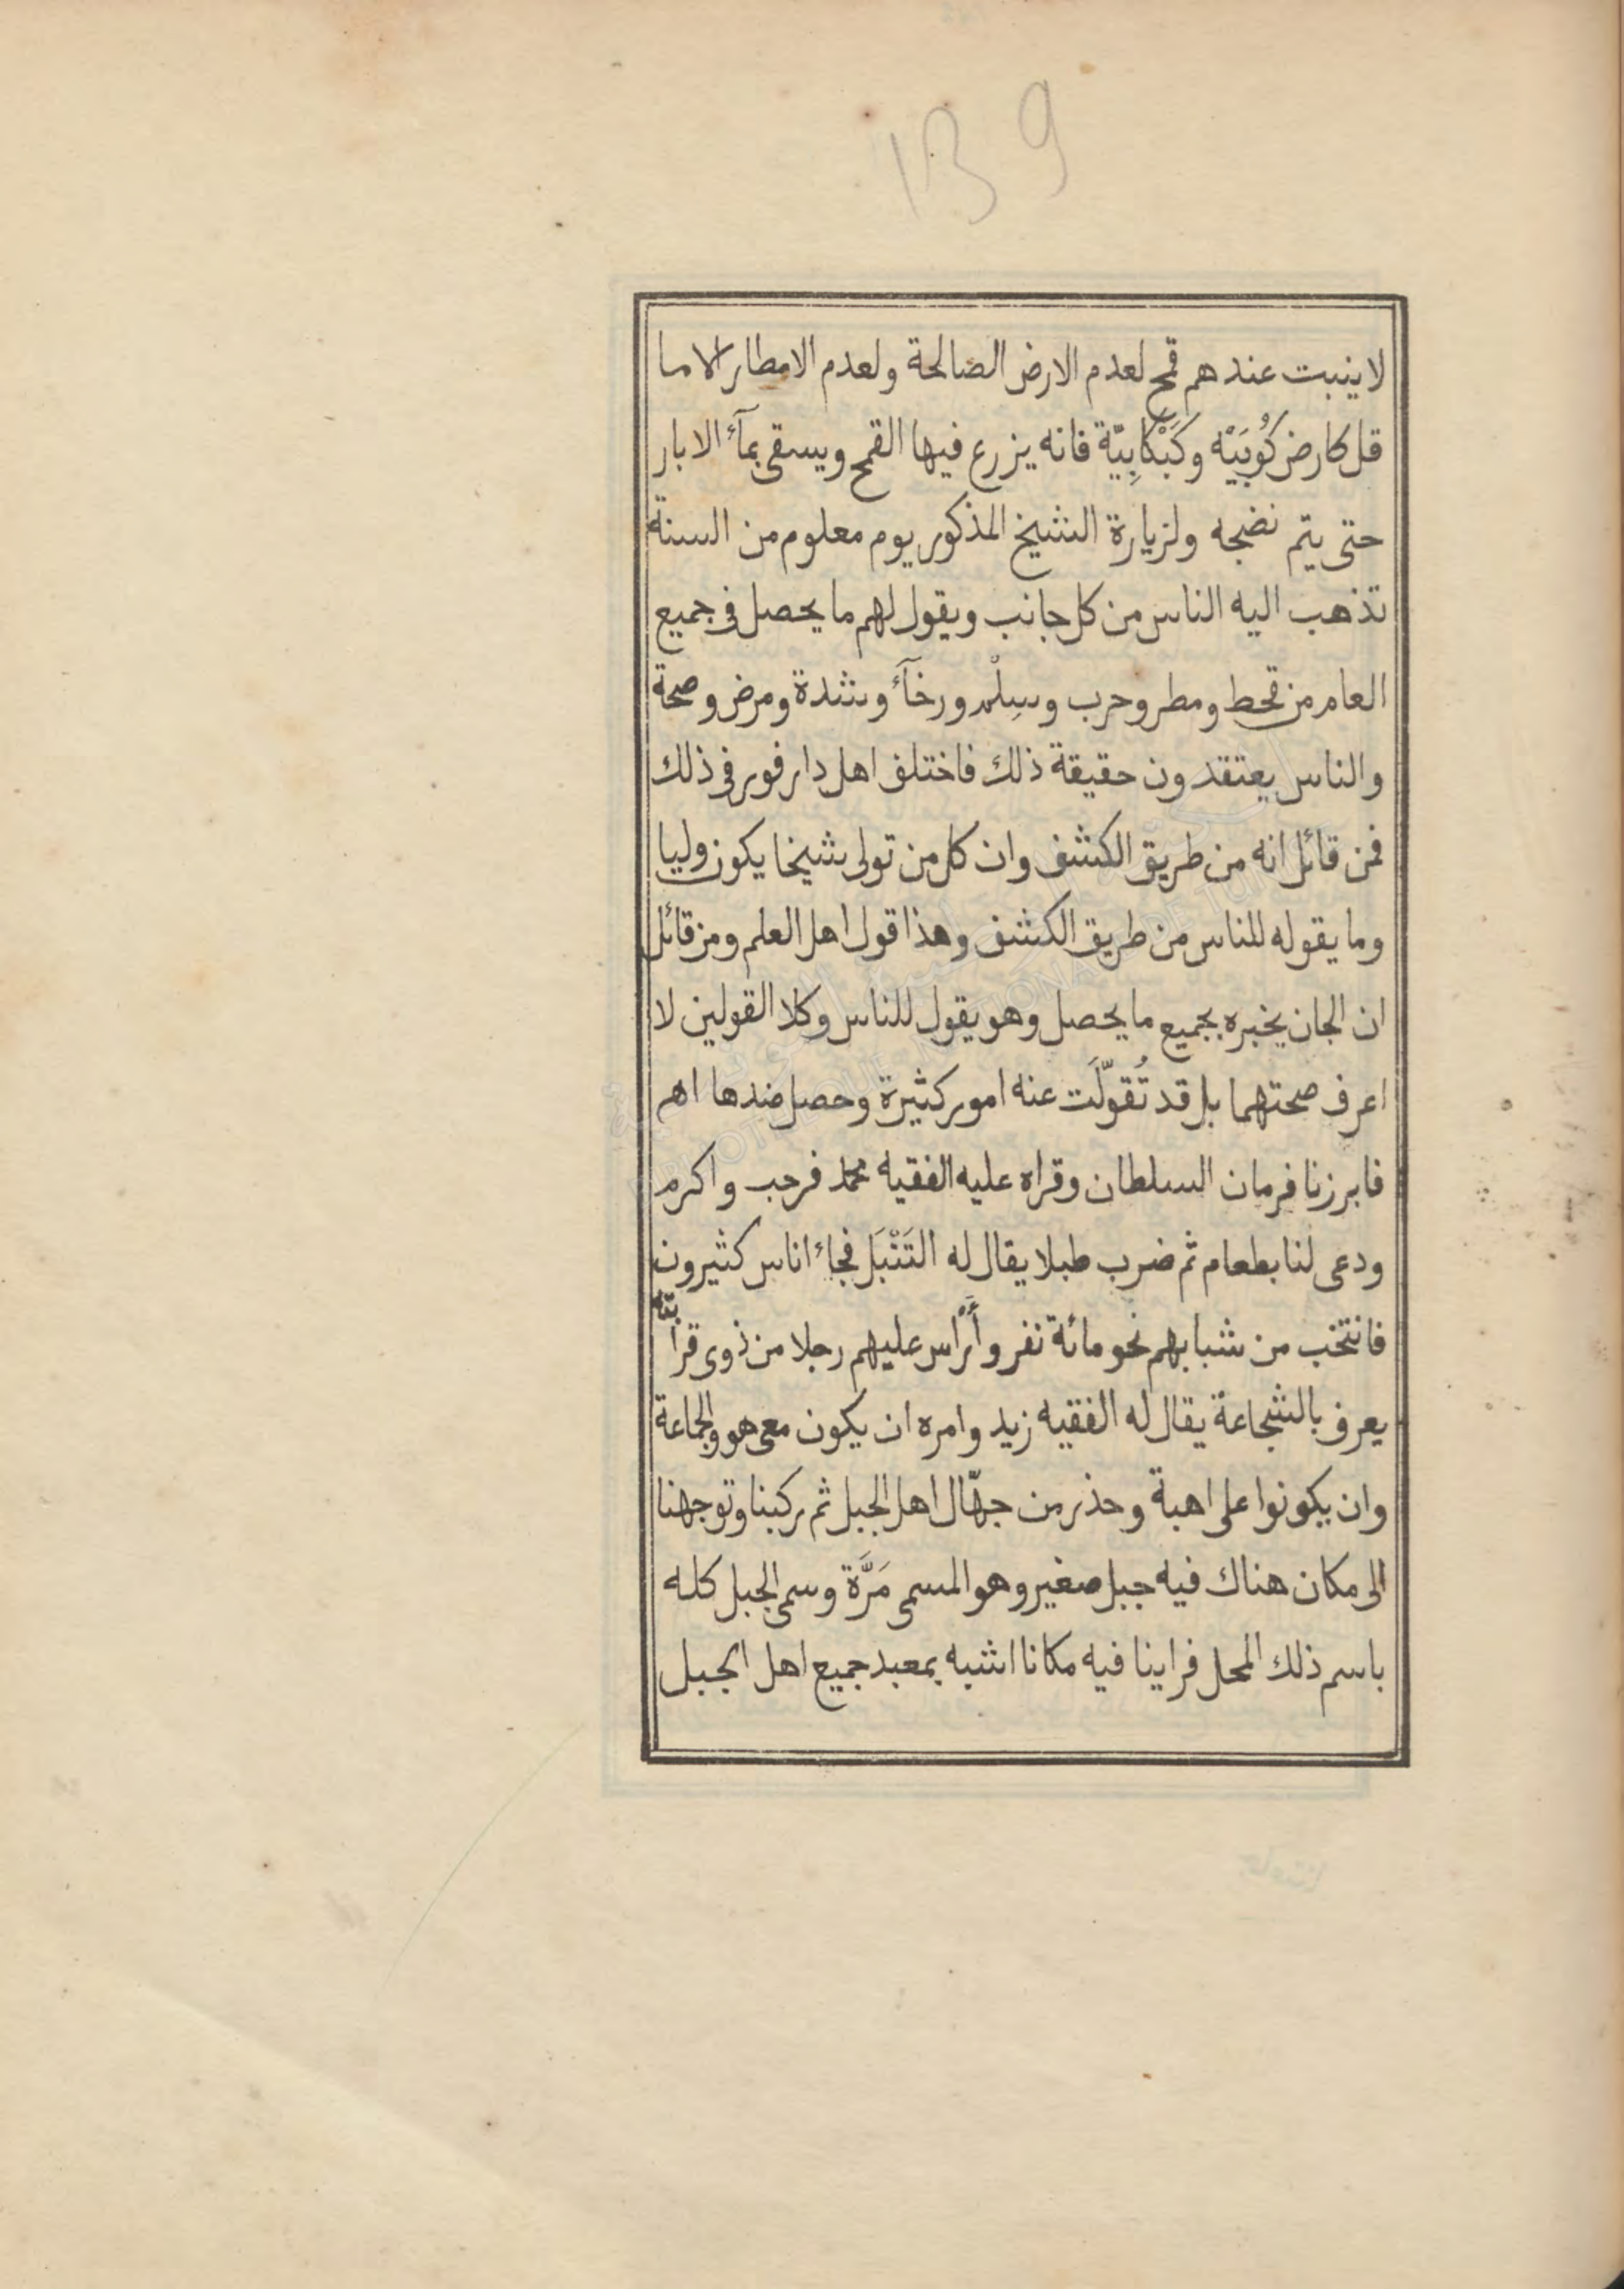 139
لا ينبت عندهم قمح لعدم الارض الصالحة ولعدم الامطار الا ما
قل كارض كُوبَيْه وكَبْكابِيّة فانه يزرع فيها القمح ويسقى بمآء الابار
حتى يتم نضجه ولزيارة الشيخ المذكور يوم معلوم من السنة
تذهب اليه الناس من كل جانب ويقول لهم ما يحصل فى جميع
العام من قحط ومطر وحرب وسِلْم ورخآء وشدة ومرض وصحة
والناس يعتقدون حقيقة ذلك فاختلف اهل دارفور فى ذلك
فمن قائل انه من طريق الكشف وان كل من تولى شيخا يكون وليا
وما يقوله للناس من طريق الكشف وهذا قول اهل العلم ومن قائل
ان الجان يخبره بجميع ما يحصل وهو يقول للناس وكلا القولين لا
اعرف صحتهما بل قد تُقوّلَت عنه امور كثيرة وحصل ضدها اهم
فابرزنا فرمان السلطان وقراه عليه الفقيه محمد فرحب واكرم
ودعى لنا بطعام ثم ضرب طبلا يقال له التَنْبَل فجاء اناس كثيرون
فانتخب من شبابهم نحو مائة نفر وأرْأس عليهم رجلا من ذوى قرابته
يعرف بالشجاعة يقال له الفقيه زيد وامره ان يكون معى هو والجماعة
وان يكونوا على اهبة وحذر من جهّال اهل الجبل ثم ركبنا وتوجهنا
الى مكان هناك فيه جبل صغير وهو المسمى مَرَّة وسمى الجبل كله
باسم ذلك المحل فراينا فيه مكانا اشبه بمعبد جميع اهل الجبل